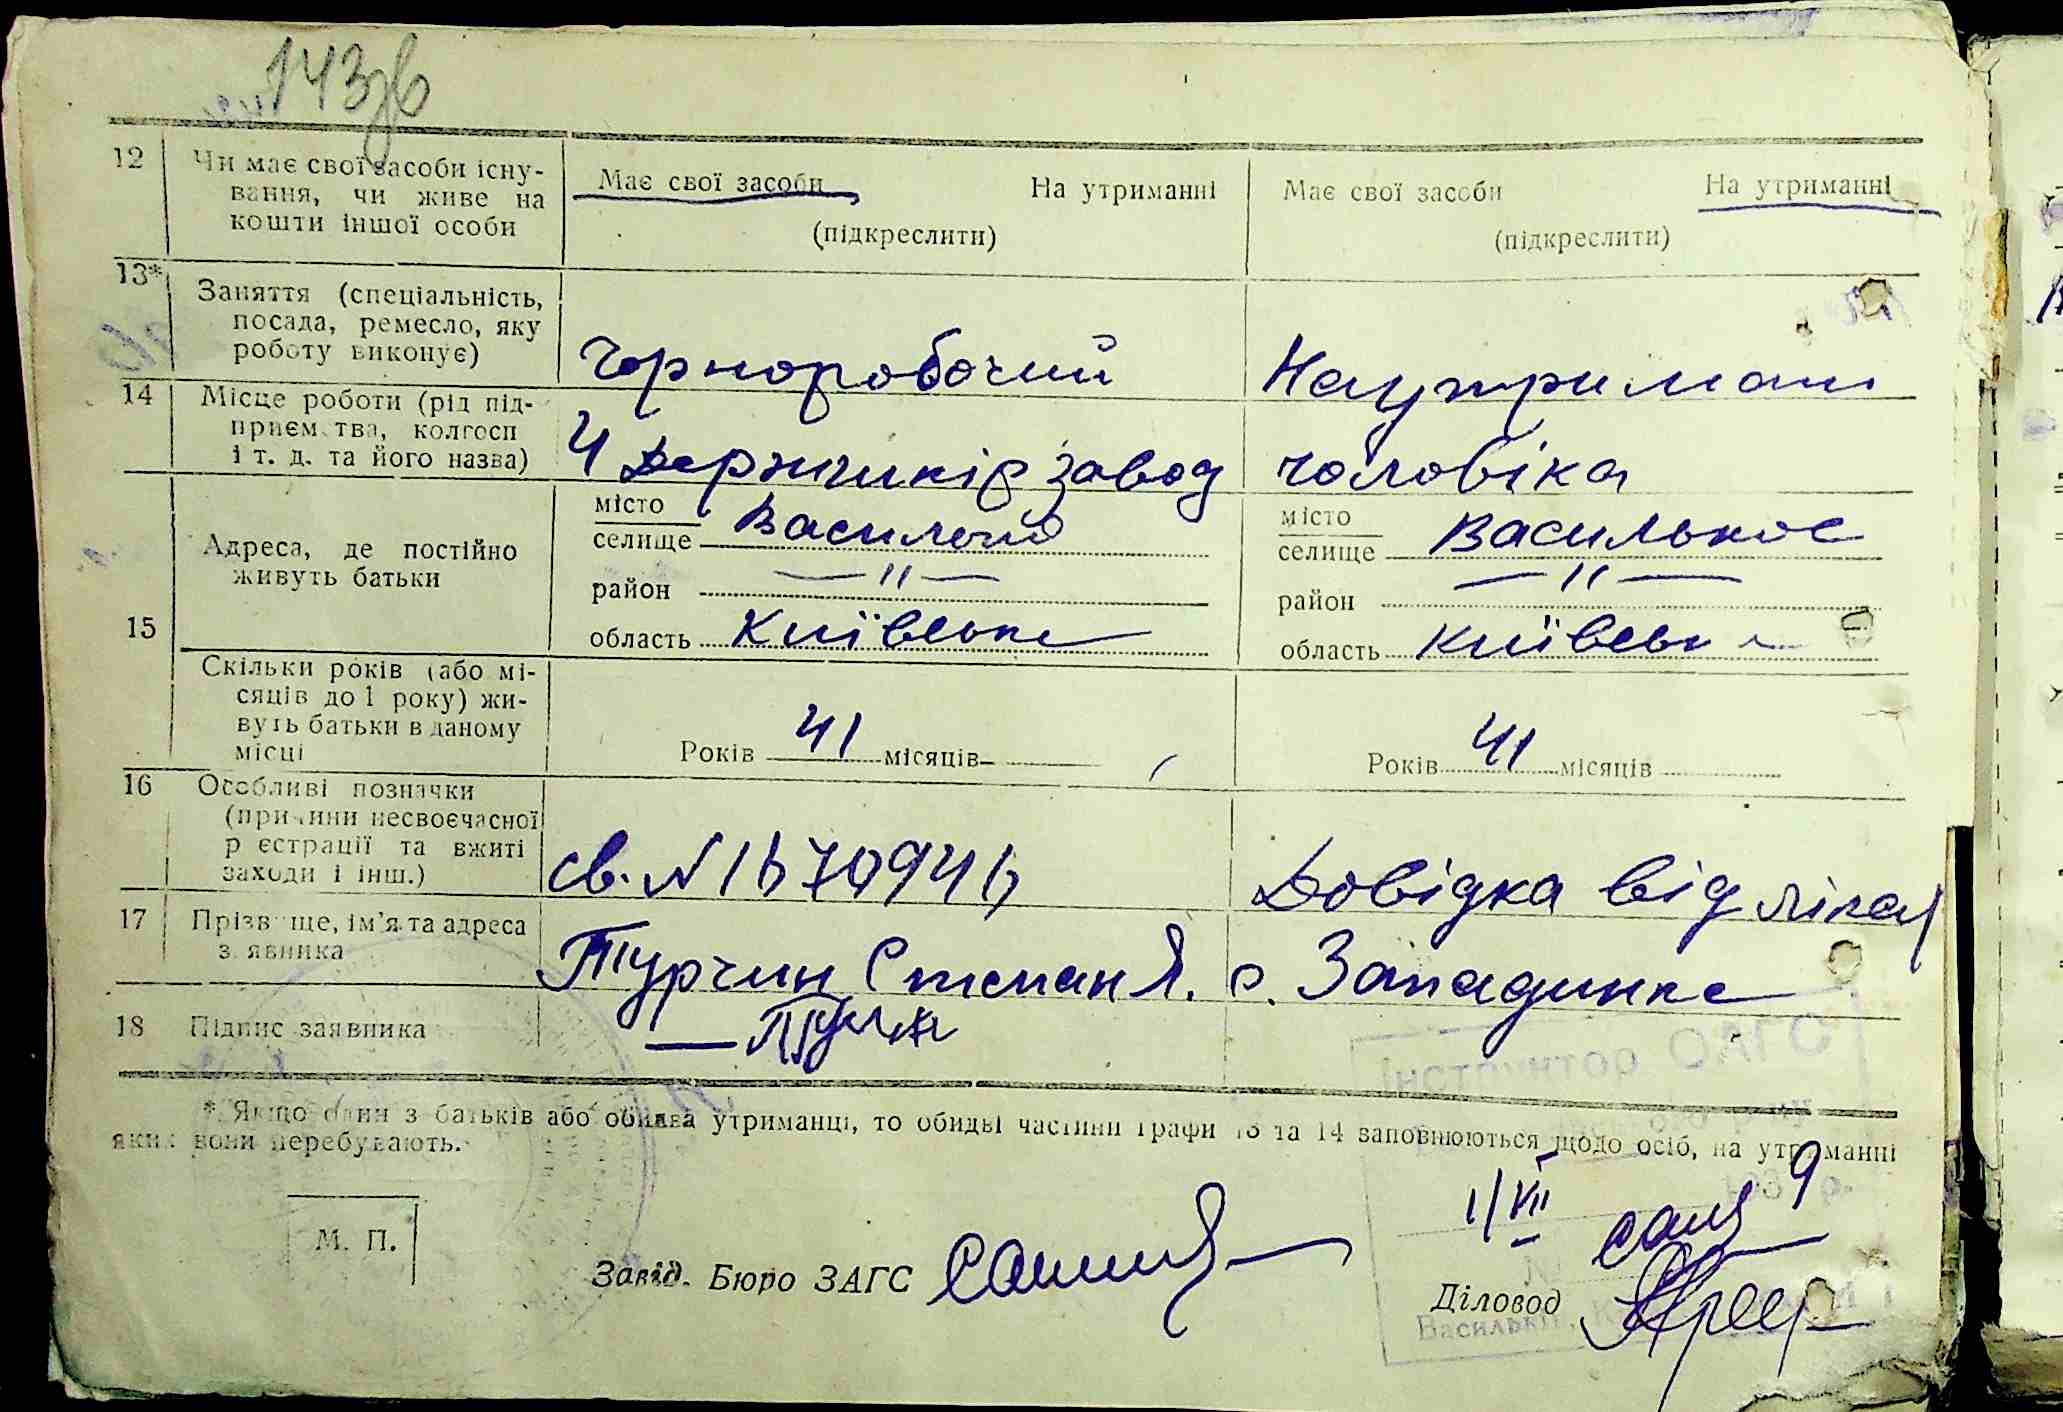 143зв
12 Чи має свої засоби існу-
вання, чи живе на
кошти іншої особи
Має свої засоби На утриманні
(підкреслити)
Має свої засоби На утриманні
(підкреслити)
13* Заняття (спеціальність,
посада, ремесло, яку
роботу виконує)
Чорноробочий
На утриман
14 Місце роботи (рід під-
приємства, колгосп
і т. д. та його назва)
Ч Держшкір завод
чоловіка
15 Адреса, де постійно
живуть батьки
місто
селище Васильків
район —"—
область Київська
місто
селище Васильков
район —"—
область Київськ
Скільки років (або мі-
сяців до 1 року) жи-
вуть батьки в даному
місці
Років 41 місяців
Років 41 місяців
16 Особливі позначки
(причини несвоєчасної
реєстрації та вжиті
заходи і інш.)
св. N
Довідка від лікар
17 Прізвище, ім'я та адреса
заявника
Турчин Степан Я. с. Западинка
18 Підпис заявника
Інструктор ОАГС
* Якщо один з батьків або обидва утриманці, то обидві частини графи 13 та 14 заповнюються щодо осіб, на утриманні
яких вони перебувають.
М. П.
Завід. Бюро ЗАГС
I/VII
9
Діловод